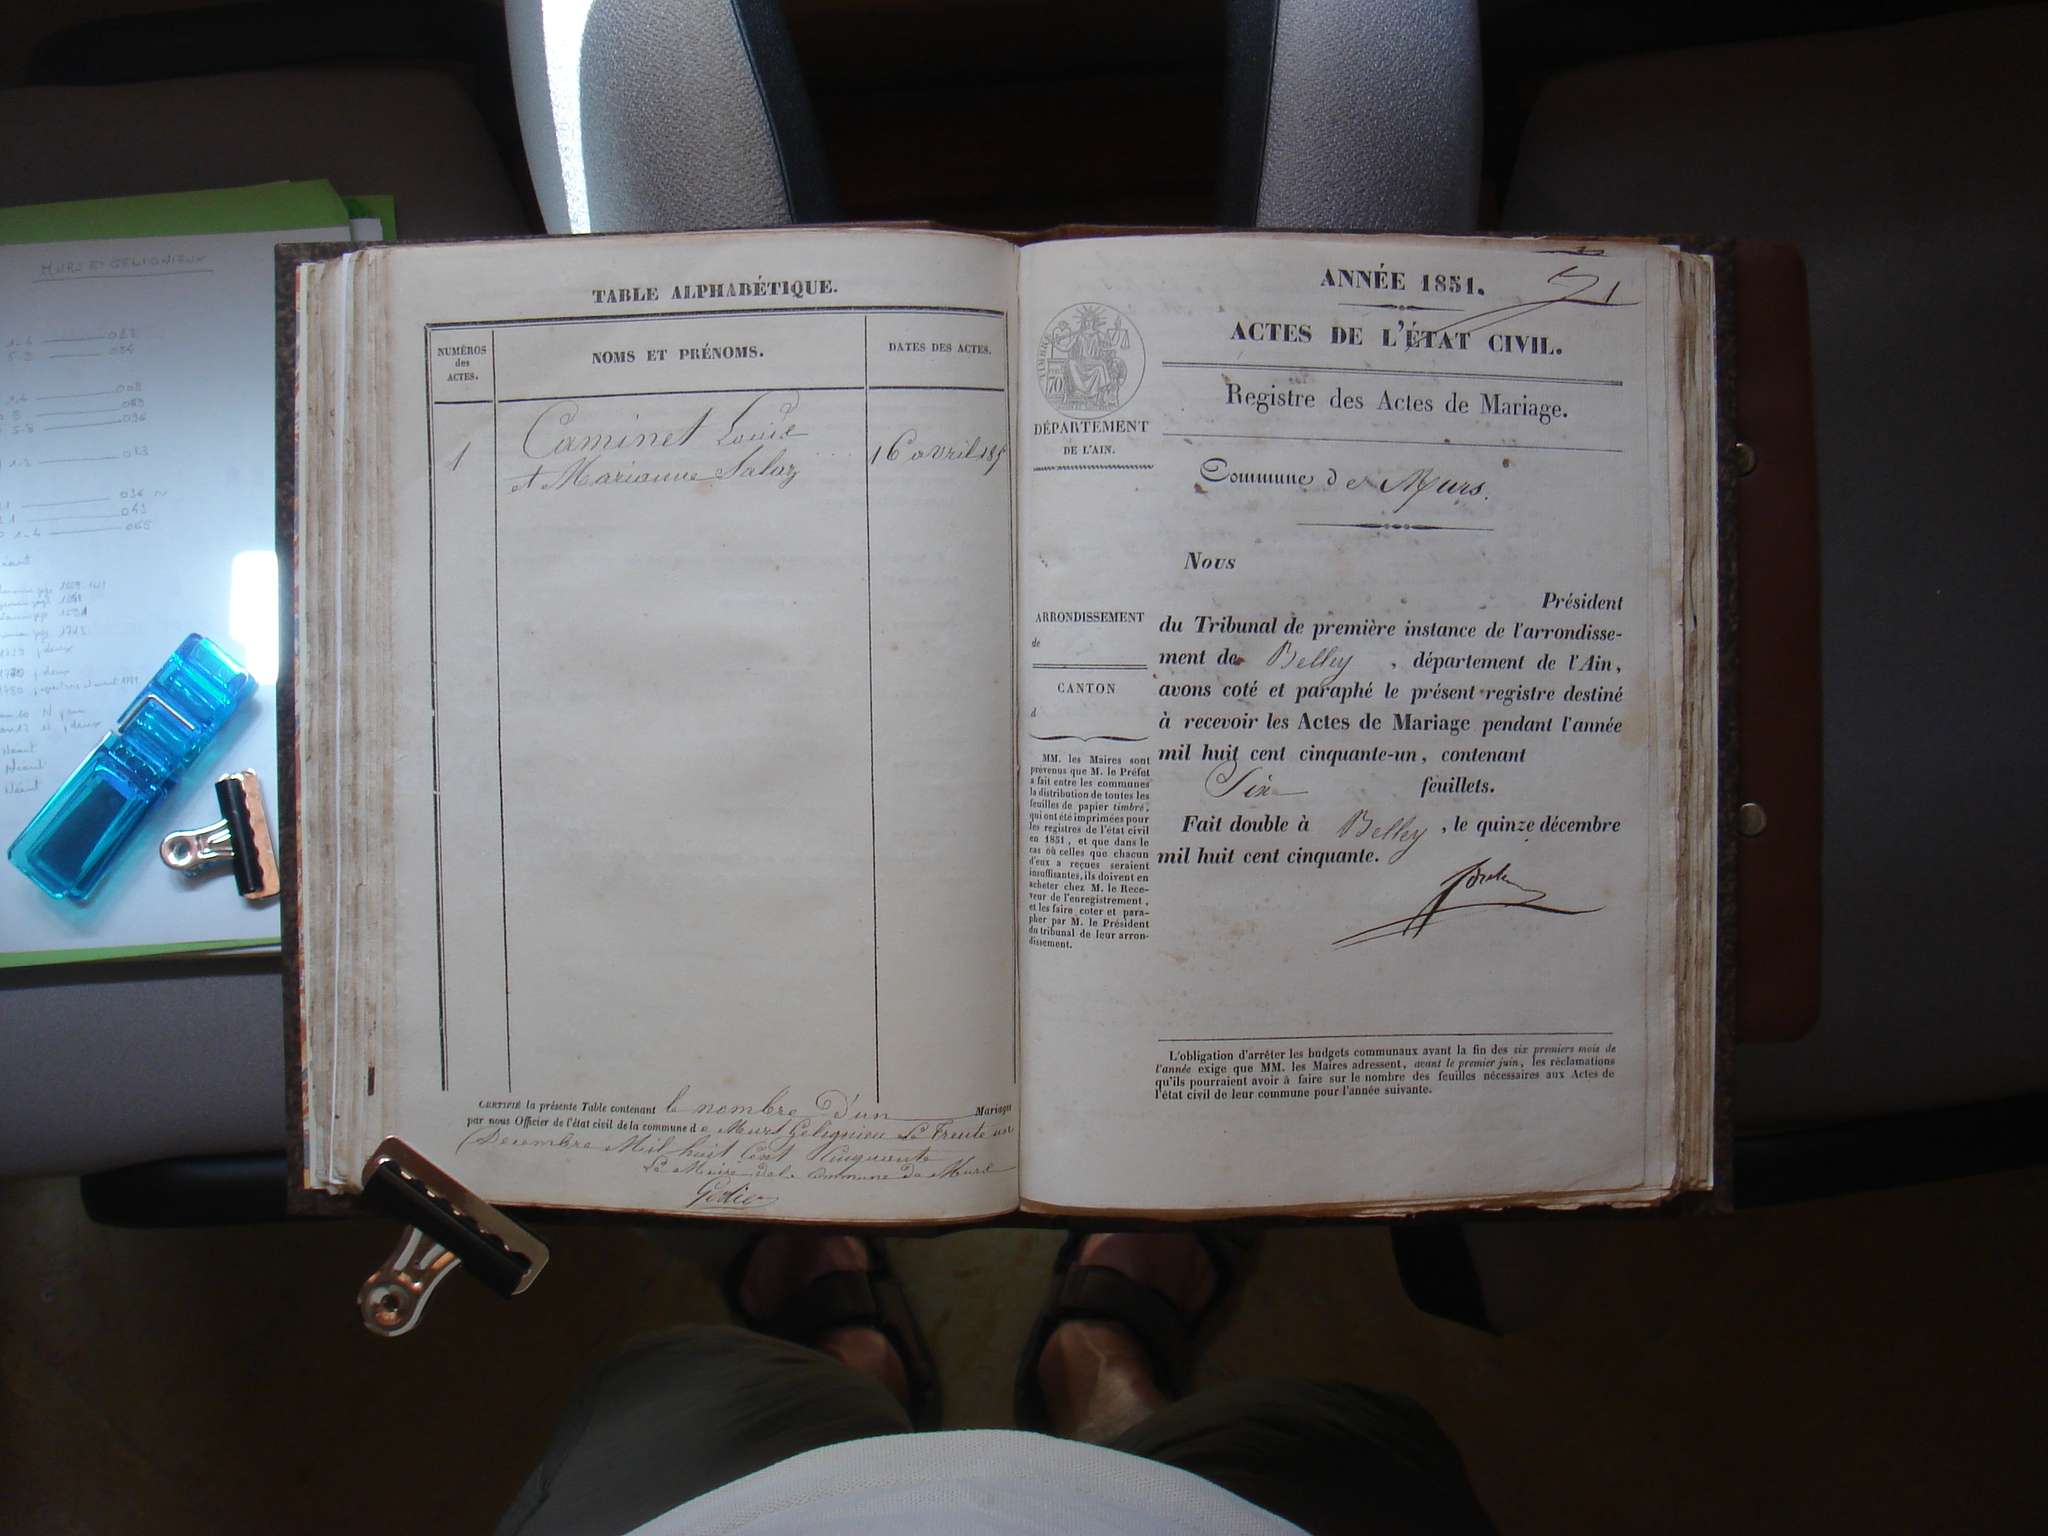 MURS ET GELIGNIEUX
TABLE ALPHABÉTIQUE.
NUMÉROS
des
ACTES.
NOMS ET PRÉNOMS.
DATES DES ACTES.
1
Caminet Louis
et Marianne
16 avril 185
CERTIFIÉ la présente Table contenant le nombre D'un Mariages
par nous Officier de l'état civil de la commune de Murs Gelignieu Le Trente un
Décembre Mil huit Cent Cinquante
Le Maire de la Commune de Murs
ANNÉE 1851.
1
ACTES DE L'ÉTAT CIVIL.
Registre des Actes de Mariage.
TIMBRE
70
DÉPARTEMENT
DE L'AIN.
Commune de Murs.
Nous
Président
du Tribunal de première instance de l'arrondisse-
ment de Belley, département de l'Ain,
avons coté et paraphé le présent registre destiné
à recevoir les Actes de Mariage pendant l'année
mil huit cent cinquante-un, contenant
Six feuillets.
Fait double à Belley, le quinze décembre
mil huit cent cinquante.
ARRONDISSEMENT
de
CANTON
d
MM. les Maires sont
prévenus que M. le Préfet
a fait entre les communes
la distribution de toutes les
feuilles de papier timbré,
qui ont été imprimées pour
les registres de l'état civil
en 1851, et que dans le
cas où celles que chacun
d'eux a reçues seraient
insuffisantes, ils doivent en
acheter chez M. le Rece-
veur de l'enregistrement,
et les faire coter et para-
pher par M. le Président
du tribunal de leur arron-
dissement.
L'obligation d'arrêter les budgets communaux avant la fin des six premiers mois de
l'année exige que MM. les Maires adressent, avant le premier juin, les réclamations
qu'ils pourraient avoir à faire sur le nombre des feuilles nécessaires aux Actes de
l'état civil de leur commune pour l'année suivante.